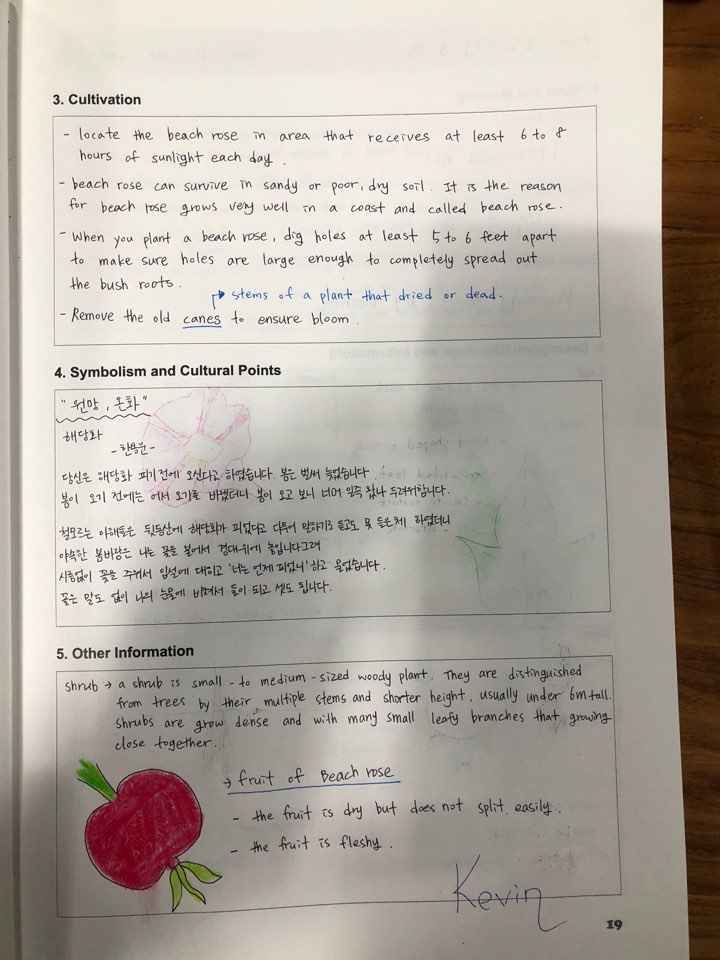 3. Cultivation
- locate the beach rose in area that receives at least 6 to 8
hours of sunlight each day.
- beach rose can survive in sandy or poor, dry soil. It is the reason
for beach rose grows very well in a coast and called beach rose.
- When you plant a beach rose, dig holes at least 5 to 6 feet apart
to make sure holes are large enough to completely spread out
the bush roots.
→ stems of a plant that dried or dead.
- Remove the old canes to ensure bloom.
4. Symbolism and Cultural Points
"원망, 온화"
해당화
-한용운-
당신은 해당화 피기 전에 오신다고 하였습니다. 봄은 벌써 늦었습니다.
봄이 오기 전에는 어서 오기를 바랐더니 봄이 오고 보니 너머 일찍 왔나 두려워합니다.
철모르는 아해들은 뒷동산에 해당화가 피었다고 다투어 말하기로 듣고도 못 들은체 하였더니
야속한 봄바람은 나는 꽃을 불어서 경대위에 놓입니다그려
시름없이 꽃을 주워서 입술에 대히고 '너는 언제 피었니'하고 물었습니다.
꽃은 말도 없이 나의 눈물에 비쳐서 둘이 되고 셋도 됩니다.
5. Other Information
shrub → a shrub is small-to medium-sized woody plant. They are distinguished
from trees by their multiple stems and shorter height, usually under 6m tall.
shrubs are grow dense and with many small leafy branches that growing
close together.
→ fruit of Beach rose
- the fruit is dry but does not split easily.
- the fruit is fleshy.
Kevin
19